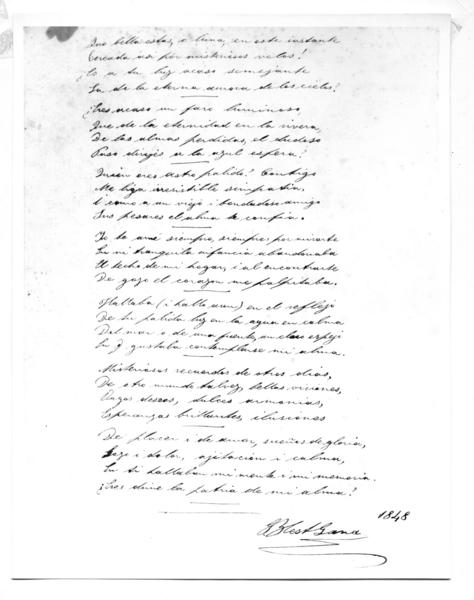 Que bella estas, o luna, en este instante
Cercada asi por misteriosos velos!
Es a tu luz acaso semejante
La de la eterna aurora de los cielos?
¿Eres acaso un faro luminoso
Que de la eternidad en la rivera,
De las almas perdidas, el dudoso
Paso dirijes a la azul esfera?
Quién eres astro palido? Contigo
Me liga irresistible simpatia,
I como a un viejo i bondadoso amigo
Sus pesares el alma te confia.
Yo te amé siempre, siempre por mirarte
En mi tranquila infancia abandonaba
El techo de mi hogar, i al encontrarte
De gozo el corazon me palpitaba.
Hallaba (i hallo aun) en el reflejo
De tu palida luz en la agua en calma
Del mar o de una fuente, un claro espejo
En q. gustaba contemplarse mi alma.
Misteriosos recuerdos de otros dias,
De otro mundo talvez, bellas visiones,
Vagos deseos, dulces armonias,
Esperanzas brillantes, ilusiones
De placer i de amor, sueños de gloria,
Gozo i dolor, ajitación i calma,
En ti hallaban mi mente i mi memoria.
¿Eres dime la patria de mi alma?
1848
G Blest Gana